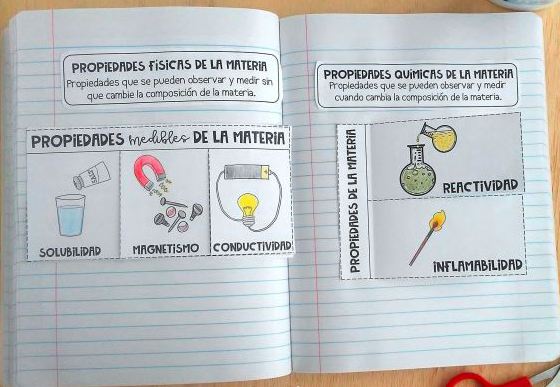 PROPIEDADES FÍSICAS DE LA MATERIA
Propiedades que se pueden observar y medir sin
que cambie la composición de la materia.
PROPIEDADES medibles DE LA MATERIA
SALT
SOLUBILIDAD
MAGNETISMO
CONDUCTIVIDAD
PROPIEDADES QUÍMICAS DE LA MATERIA
Propiedades que se pueden observar y medir
cuando cambia la composición de la materia.
PROPIEDADES DE LA MATERIA
REACTIVIDAD
INFLAMABILIDAD